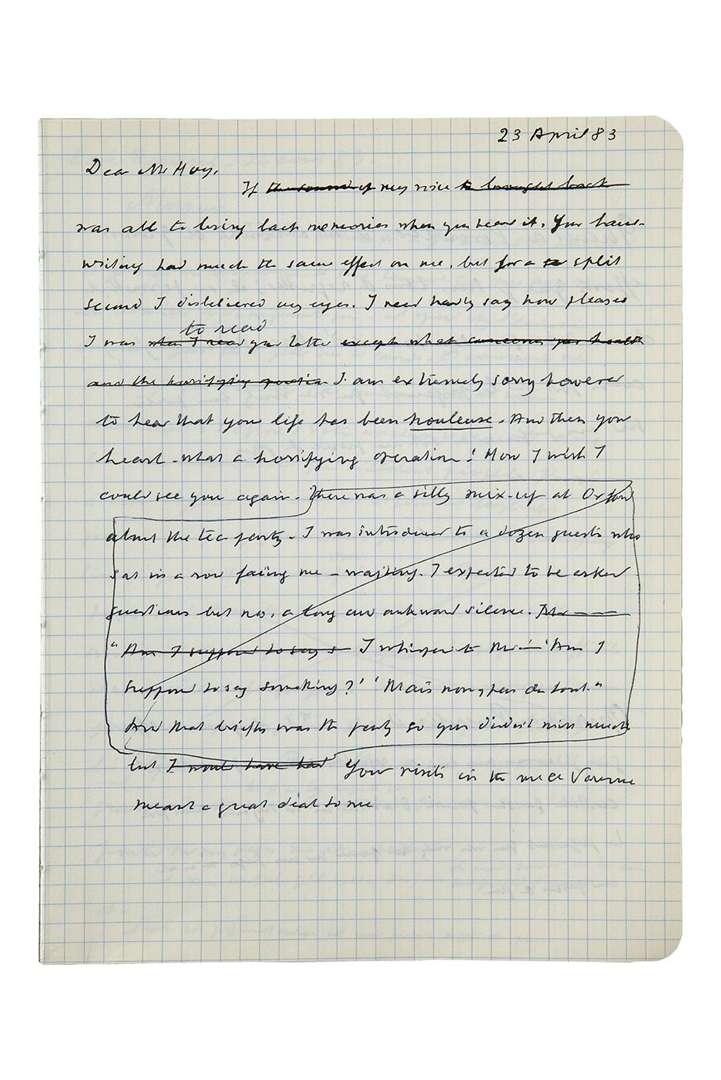 23 April 83
Dear Mr Hoy,
If the sound of my voice to brought back
was all to bring back memories when you hear it. Your hand-
writing had much the same effect on me, but for a split
second I disbelieved my eyes. I need hardly say how pleased
to read
I was when I read your letter except what concerns your health
and the horrifying operation I am extremely sorry however
to hear that your life has been houleuse. And then your
heart - what a horrifying operation! How I wish I
could see you again. There was a silly mix-up at Oxford
about the tea party - I was introduced to a dozen guests who
sat in a row facing me - waiting. I expected to be asked
questions but no, a long and awkward silence.
"Am I supposed to say s I whisper to Mr — 'Am I
supposed to say something?' 'Mais non, pas du tout."
And that briefly was the party so you didn't miss much
but I would have had Your visits in the rue de Varenne
meant a great deal to me